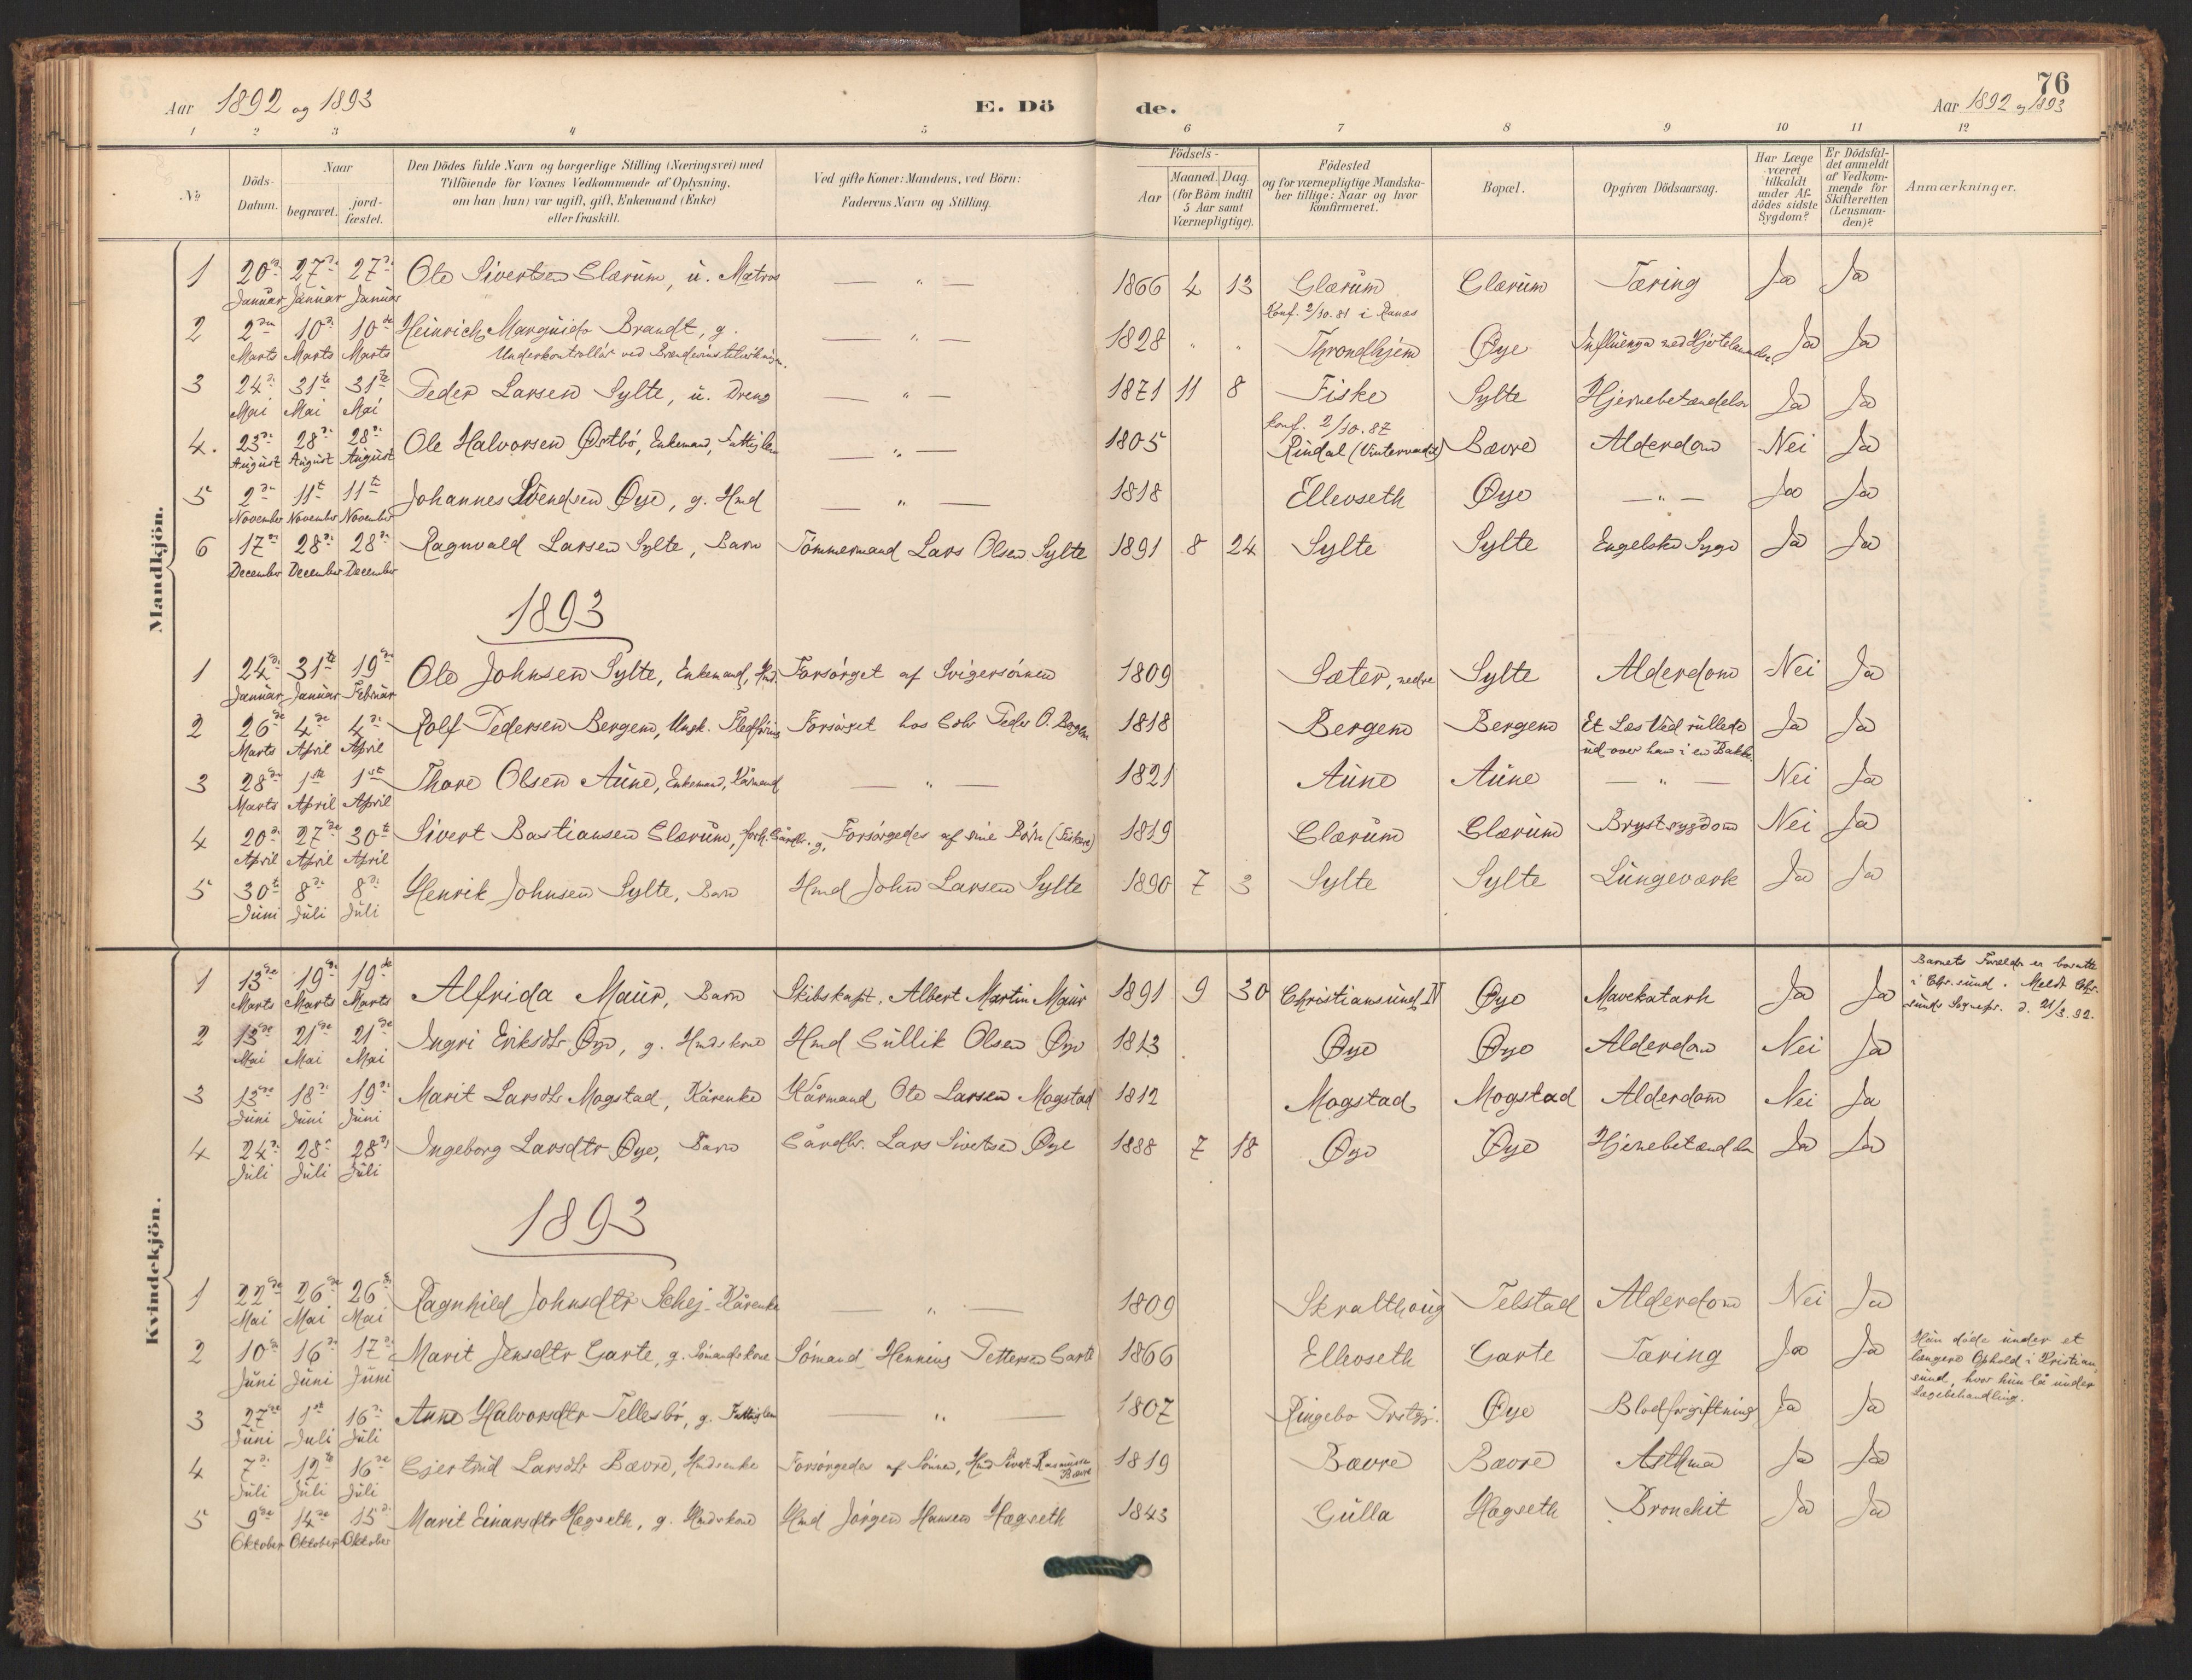 76
Aar 1892 og 1893 E. Dö de. Aar 1892 og 1893
1 2 3 4 5 6 7 8 9 10 11 12
No Döds-Datum. Naar begravet. jordfæstet. Den Dödes fulde Navn og borgerlige Stilling (Næringsvei) med Tilföiende for Voxnes Vedkommende af Oplysning, om han (hun) var ugift, gift, Enkemand (Enke) eller fraskilt. Ved gifte Koner: Mandens, ved Börn: Faderens Navn og Stilling. Födsels- Aar Maaned. Dag. (for Börn indtil 5 Aar samt Værnepligtige). Födested og for værnepligtige Mandskaber tillige: Naar og hvor konfirmeret. Bopæl. Opgiven Dödsaarsag. Har Læge været tilkaldt under Afdödes sidste Sygdom? Er Dödsfaldet anmeldt af Vedkommende for Skifteretten (Lensmanden)? Anmærkninger.
Mandkjön.
1 20de Januar 27de Januar 27de Januar Ole Sivertsen Glærum, u. Matros — " — 1866 4 13 Glærum Glærum Tæring Ja Ja
Konf. 2/10.81 i Ranæs
2 2den Marts 10de Marts 10de Marts Heinrich Brandt, g. — " — 1828 " " Throndhjem Øye Influenza med Ja Ja
Underkontrollør ved
3 24de Mai 31te Mai 31te Mai Peder Larsen Sylte, u. Dreng — " — 1871 11 8 Fiske Sylte Hjernebetændelse Ja Ja
Konf. 2/10.87
4. 23de August 28de August 28de August Ole Halvorsen Østbø, Enkemand, Fattiglem — " — 1805 Rindal Bævre Alderdom Nei Ja
5 2den November 11te November 11te November Johannes Svendsen Øye, g. Hmd — " — 1818 Ellevseth Øye — " — Ja Ja
6 17de December 28de December 28de December Ragnvald Larsen Sylte, Barn Tømmermand Lars Olsen Sylte 1891 8 24 Sylte Sylte Engelske Syge Ja Ja
1893
1 24de Januar 31te Januar 19de Februar Ole Johnsen Sylte, Enkemand, Hmd. Forsørget af Svigersønnen 1809 Sæter, nedre Sylte Alderdom Nei Ja
2 26de Marts 4de April 4de April Rolf Pedersen Bergem, Ungk. Forsørget hos Gdbr Peder O. Bergem 1818 Bergem Bergem Et Læs Ved rullede Ja Ja
ud over ham i en Bakke
3 28de Marts 1ste April 1ste April Thore Olsen Aune, Enkemand, Kårmand — " — 1821 Aune Aune — " — Nei Ja
4 20de April 27de April 30te April Sivert Bastiansen Glærum, forh. Gårdbr. g. Forsørgedes af sine Børn (Fiskere) 1819 Glærum Glærum Brystsygdom Nei Ja
5 30te Juni 8de Juli 8de Juli Henrik Johnsen Sylte, Barn Hmd John Larsen Sylte 1890 7 3 Sylte Sylte Lungeværk Ja Ja
Kvindekjön.
1 13de Marts 19de Marts 19de Marts Alfrida Maur, Barn Skibskapt. Albert Martin Maur 1891 9 30 Christiansund N Øye Mavekatarh Ja Ja Barnets Forældre er bosatte
i Chr.sund. Meldt Chr.
sunds Sognepr. d. 21/3.92.
2 13de Mai 21de Mai 21de Mai Ingri Eriksdtr Øye, g. Hmdskone Hmd Gullik Olsen Øye 1813 Øye Øye Alderdom Nei Ja
3 13de Juni 18de Juni 19de Juni Marit Larsdtr Mogstad, Kårenke Kårmand Ole Larsen Mogstad 1812 Mogstad Mogstad Alderdom Nei Ja
4 24de Juli 28de Juli 28de Juli Ingeborg Larsdtr Øye, Barn Gårdbr. Lars Sivertsen Øye 1888 7 18 Øye Øye Hjernebetændelse Ja Ja
1893
1 22de Mai 26de Mai 26de Mai Ragnhild Johnsdtr Schej Kårenke — " — 1809 Skralthoug Telstad Alderdom Nei Ja
2 10de Juni 16de Juni 17de Juni Marit Jensdtr Garte, g. Sømandskone Sømand Henning Pettersen Garte 1866 Ellevseth Garte Tæring Ja Ja Hun døde under et
længere Ophold i Kristian
sund, hvor hun lå under
Lægebehandling.
3 27de Juni 1ste Juli 16de Juli Anne Halvorsdtr Tellesbø, g. Fattiglem — " — 1807 Ringebo Prstgj. Øye Blodforgiftning Ja Ja
4 7de Juli 12te Juli 16de Juli Gjertrud Larsdtr Bævre, Hmdsenke Forsørgedes af Sønnen, Hmd Sivert Rasmussen Bævre 1819 Bævre Bævre Asthma Ja Ja
5 9de Oktober 14de Oktober 15de Oktober Marit Einarsdtr Hægseth, g. Hmdskone Hmd Jørgen Hansen Hægseth 1843 Gulla Hægseth Bronchit Ja Ja